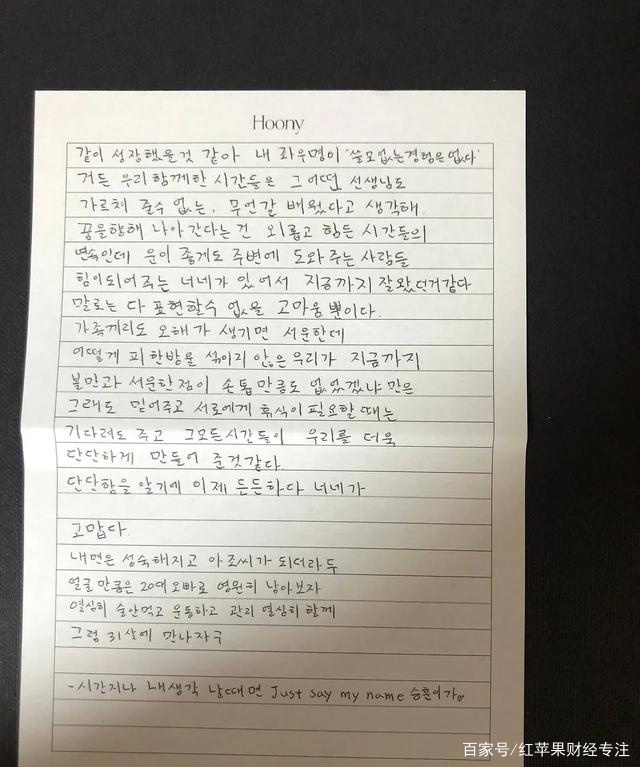 Hoony
같이 성장했을것 같아 내 좌우명이 '쓸모없는경험은 없다'
거든 우리 함께한 시간들은 그 어떤 선생님도
가르쳐 줄수 없는, 무언갈 배웠다고 생각해.
꿈을향해 나아간다는건 외롭고 힘든 시간들의
연속인데 운이 좋게도 주변에 도와주는 사람들
힘이되어주는 너네가 있어서 지금까지 잘왔던거같다
말로는 다 표현할수 없을 고마움 뿐이다.
가족끼리도 오해가 생기면 서운한데
어떻게 피한방울 섞이지 않은 우리가 지금까지
불만과 서운한점이 손톱만큼도 없었겠냐만은
그래도 믿어주고 서로에게 휴식이 필요할때는
기다려도 주고 그모든시간들이 우리를 더욱
단단하게 만들어 준것같다.
단단함을 알기에 이제 든든하다 너네가
고맙다.
내면은 성숙해지고 아조씨가 되더라두
얼굴 만큼은 20대 오빠로 영원히 남아보자
열심히 술안먹고 운동하고 관리 열심히 할께
그럼 31살에 만나자구
-시간지나 내생각 날때면 Just say my name 승훈이가♡
百家号/红苹果财经专注